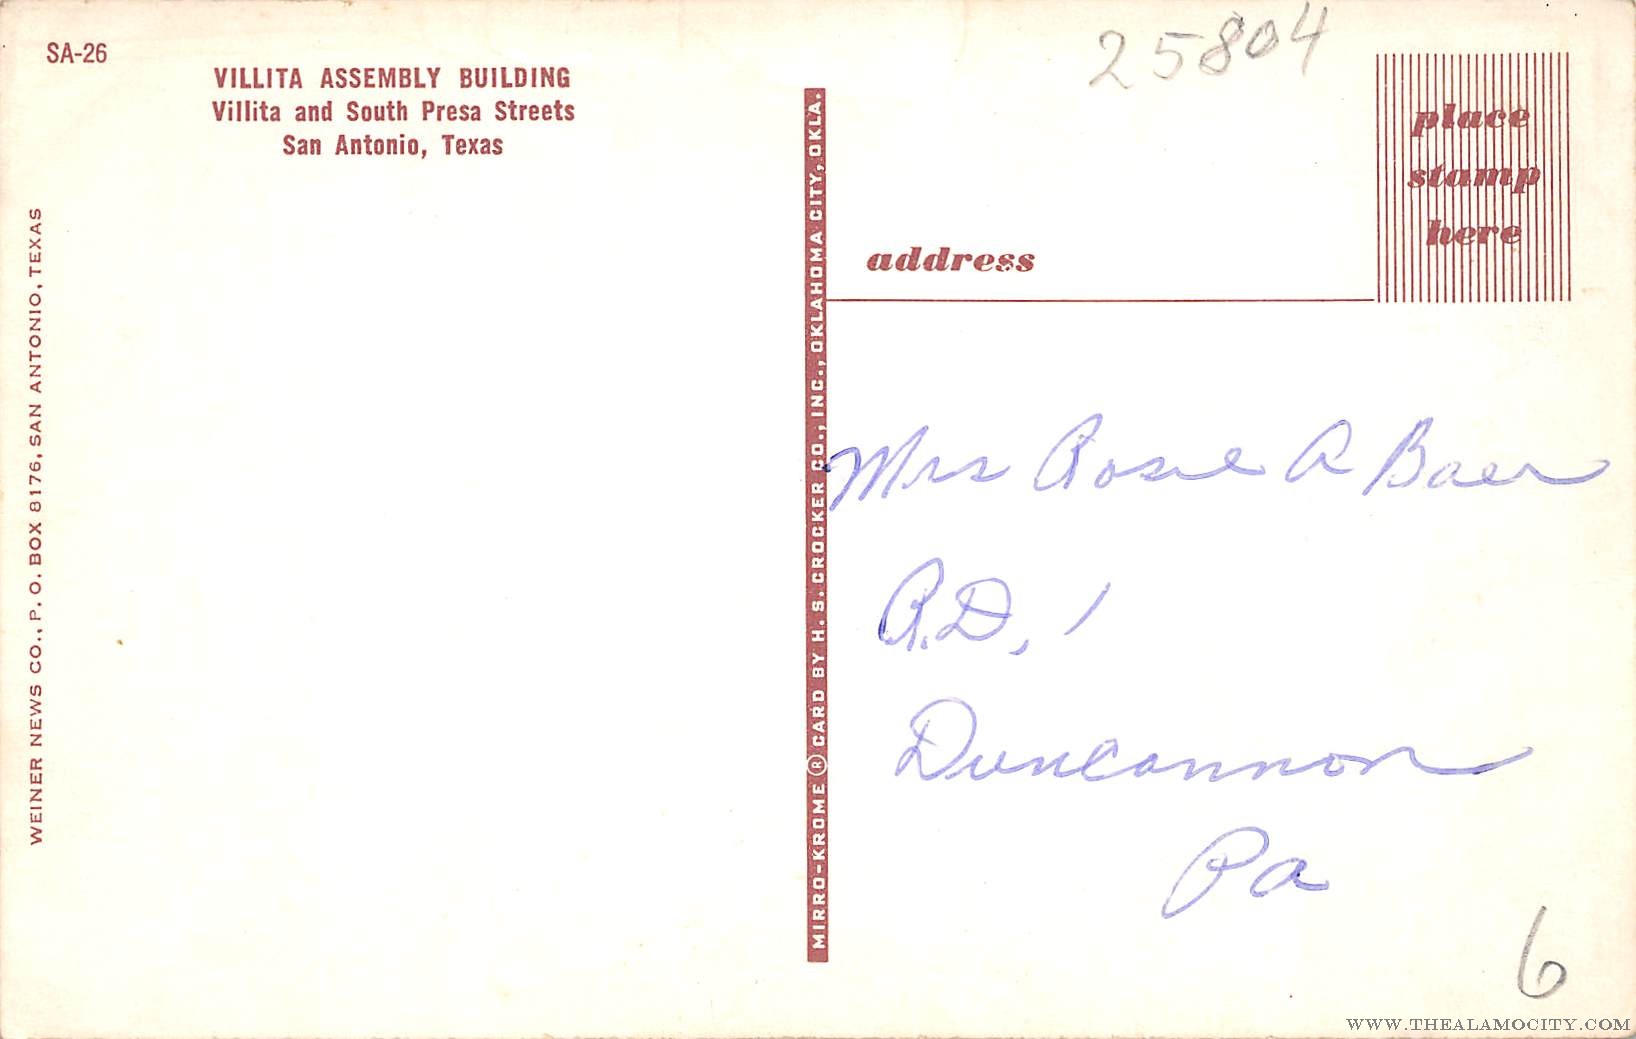 SA-26
VILLITA ASSEMBLY BUILDING
Villita and South Presa Streets
San Antonio, Texas
WEINER NEWS CO., P. O. BOX 8176, SAN ANTONIO, TEXAS
MIRRO-KROME ® CARD BY H. S. CROCKER CO., INC., OKLAHOMA CITY, OKLA.
25804
place
stamp
here
address
Mrs Rosie A Baer
R.D, 1
Duncannon
Pa
6
WWW.THEALAMOCITY.COM